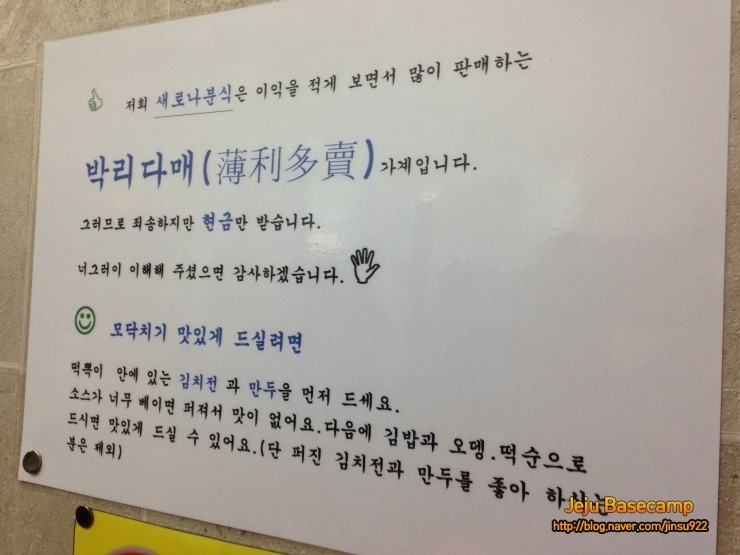 저희 새로나분식은 이익을 적게 보면서 많이 판매하는
박리다매(薄利多賣)가게입니다.
그러므로 죄송하지만 현금만 받습니다.
너그러이 이해해 주셨으면 감사하겠습니다.
모닥치기 맛있게 드실려면
떡뽁이 안에 있는 김치전 과 만두을 먼저 드세요.
소스가 너무 베이면 퍼져서 맛이 없어요.다음에 김밥과 오뎅.떡순으로
드시면 맛있게 드실 수 있어요.(단 퍼진 김치전과 만두를 좋아 하시는
분은 제외)
Jeju Basecamp
http://blog.naver.com/jinsu922